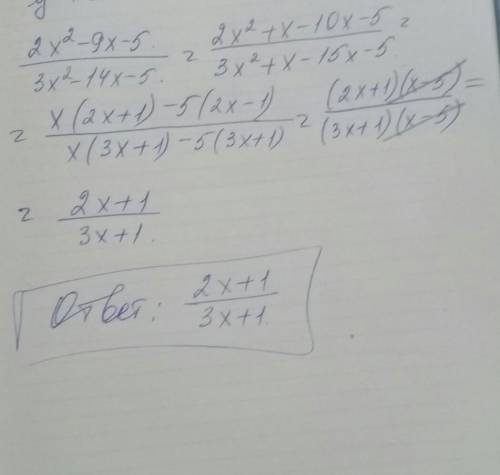 2x²-9x-5 / 3x²-14x-5 = 2x²+x-10x-5 / 3x²+x-15x-5 =
= x(2x+1)-5(2x-1) / x(3x+1)-5(3x+1) = (2x+1)(x-5) / (3x+1)(x-5) =
= 2x+1 / 3x+1.
Ответ: 2x+1 / 3x+1.